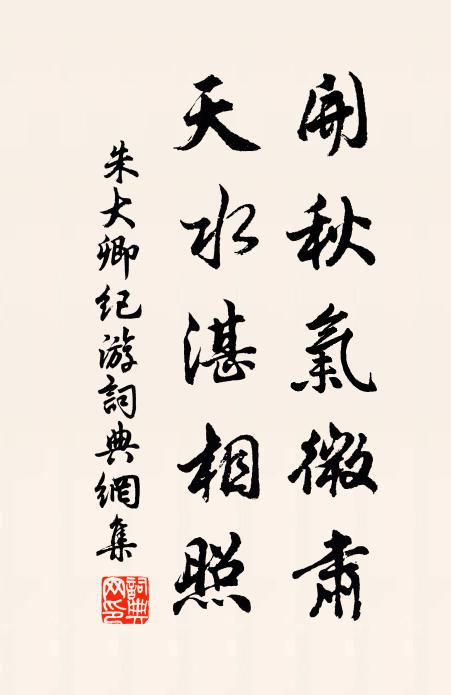 開秋氣微肅
天水湛相照
朱大卿紀游詞典網集
詞典網印